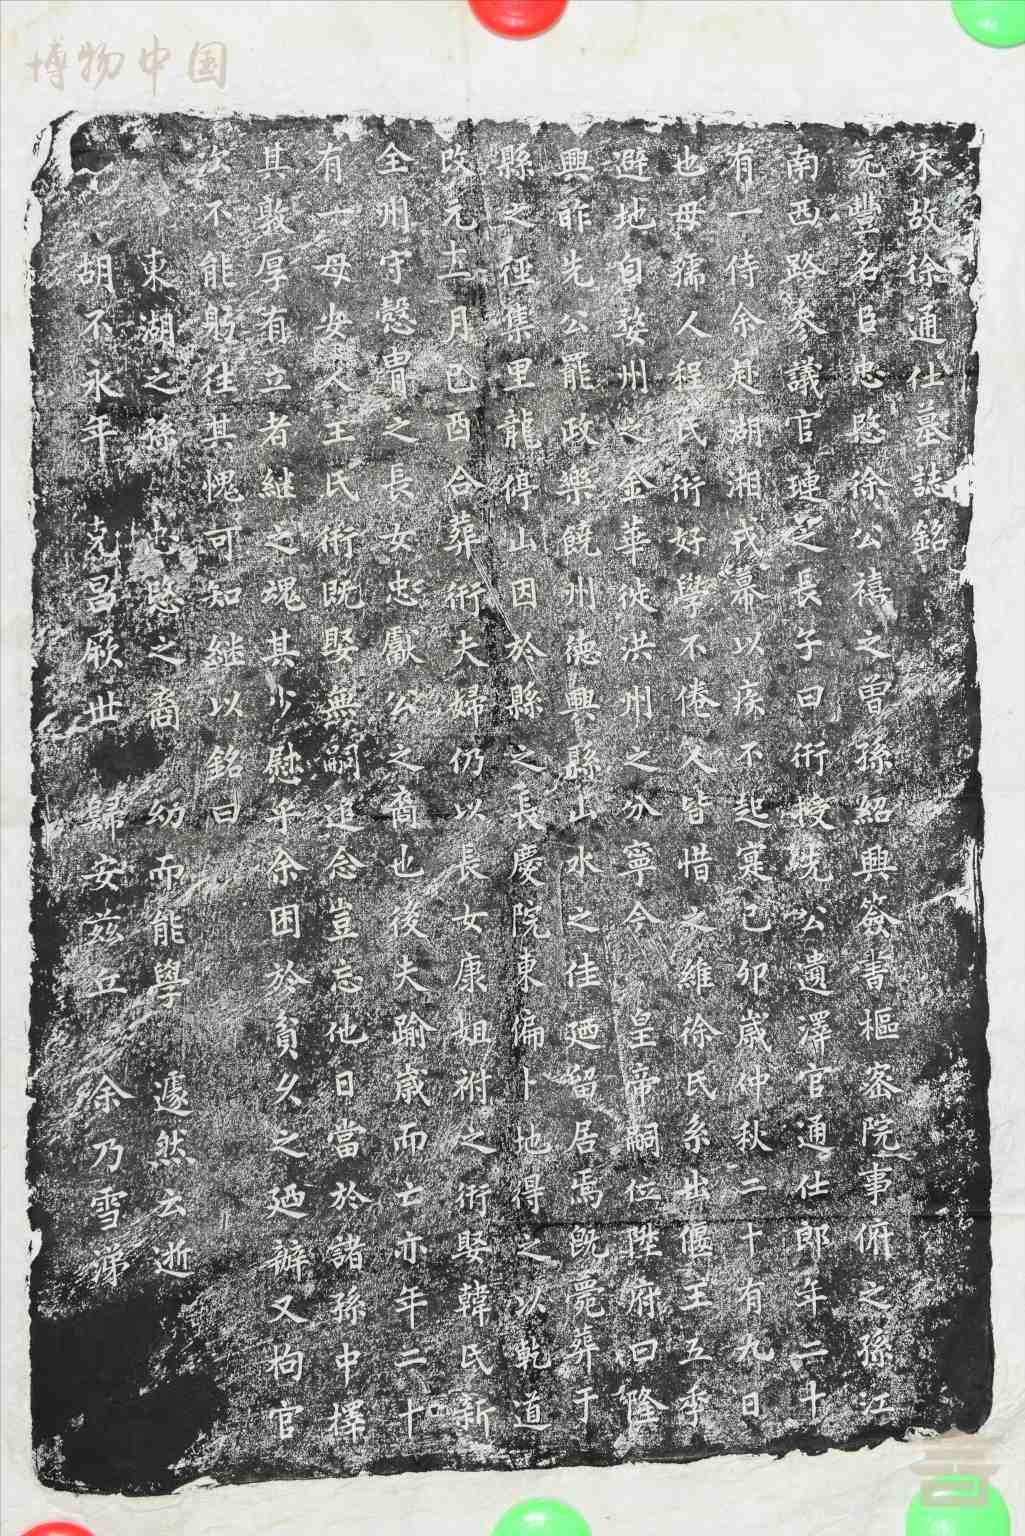 博物中国
宋故徐通仕墓誌銘
元豐名臣忠愍徐公禧之曾孫紹興簽書樞密院事俯之孫江
南西路參議官璉之長子曰術授先公遺澤官通仕郎年二十
有一侍余赴湖湘戎幕以疾不起寔己卯歲仲秋二十有九日
也母孺人程氏術好學不倦人皆惜之維徐氏系出偃王五季
避地自婺州之金華徙洪州之分寧今皇帝嗣位陞府曰隆
興昨先公罷政樂饒州德興縣山水之佳廼留居焉旣薨葬于
縣之徑集里龍停山因於縣之長慶院東偏卜地得之以乾道
改元十二月己酉合葬術夫婦仍以長女康姐祔之術娶韓氏新
全州守愨胄之長女忠獻公之裔也後夫踰歲而亡亦年二十
有一母安人王氏術既娶無嗣追念豈忘他日當於諸孫中擇
其敦厚有立者継之魂其少慰乎余困於貧久之廼辦又拘官
次不能躬往其愧可知継以銘曰
東湖之孫 忠愍之裔 幼而能學 遽然云逝
胡不永年 克昌厥世 歸安茲丘 余乃雪涕